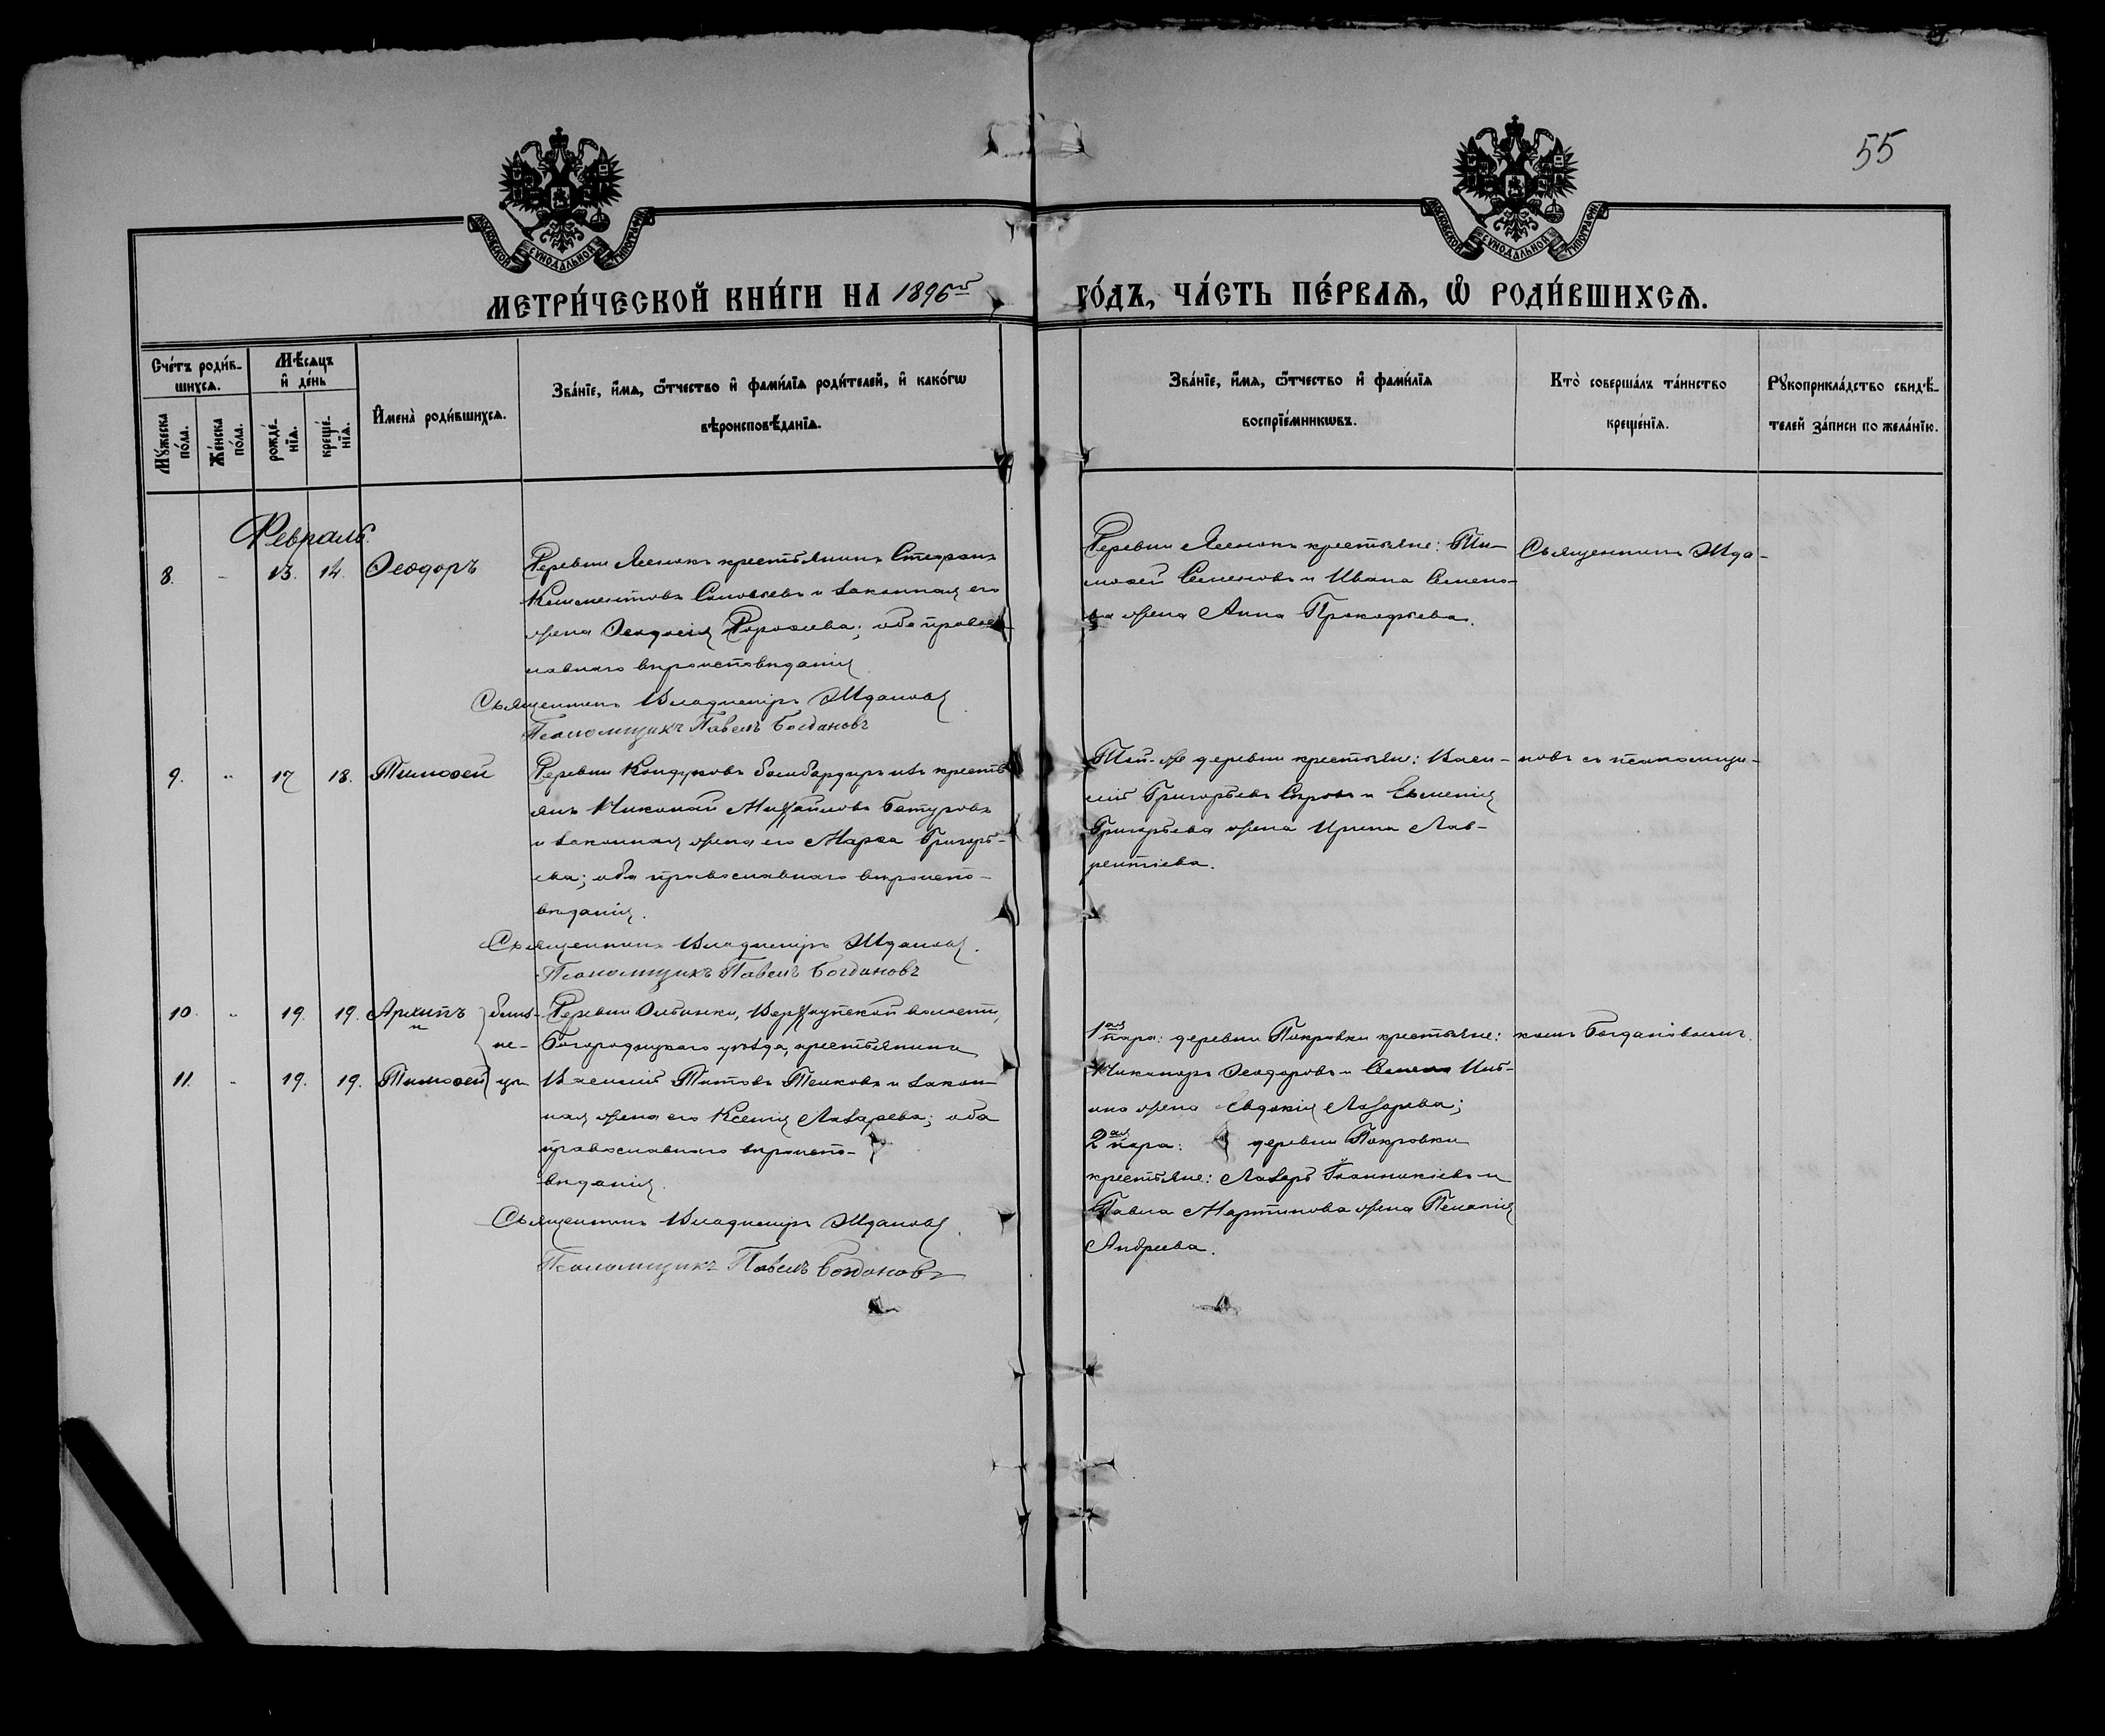 55
МОСКОВСКОЙ СУНОДАЛЬНОЙ ТИПОГРАФІИ
МОСКОВСКОЙ СУНОДАЛЬНОЙ ТИПОГРАФІИ
МЕТРИ́ЧЕСКОЙ КНИ́ГИ НА 1896й
ГО́ДЪ, ЧА́СТЬ ПЕ́РВАѦ, Ѽ РОДИ́ВШИХСѦ.
Сче́тъ роди́в-
шихсѧ.
Мꙋ́жеска
по́ла.
Же́нска
по́ла.
Мѣ́сѧцъ
и҆ де́нь
рожде́-
нїѧ.
креще́-
нїѧ.
И҆мена̀ роди́вшихсѧ.
Зва́нїе, и҆́мѧ, ѻ҆́тчество и҆ фами́лїѧ роди́телей, и҆ како́гѡ
вѣроисповѣ́данїѧ.
Зва́нїе, и҆́мѧ, ѻ҆́тчество и҆ фами́лїѧ
воспрїе́мникѡвъ.
Кто̀ соверша́лъ та́инство
креще́нїѧ.
Рꙋкоприкла́дство свидѣ́-
телей за́писи по жела́нїю.
Февраль.
8. - 13. 14. Ѳеодоръ
Деревни Ясенокъ крестьянинъ Стефанъ
Климентовъ Соловьевъ и законная его
жена Ѳеодосія Дороѳеева; оба правос-
лавнаго вѣроисповѣданія
Священникъ Владимиръ Ждановъ
Псаломщикъ Павелъ Богдановъ
Деревни Ясенокъ крестьяне: Ти-
моѳей Семеновъ и Ивана Семено-
ва жена Анна Прокофьева.
Священникъ Жда-
9. " 17 18. Тимоѳей
Деревни бомбардиръ изъ кресть-
янъ Николай Михайловъ Батуровъ
и законная жена его Марѳа Григорь-
ева; оба православнаго вѣроиспо-
вѣданія.
Священникъ Владимиръ Ждановъ.
Псаломщикъ Павелъ Богдановъ
Той-же деревни крестьяне: Васи-
лій Григорьевъ и
Григорьева жена Ирина Лав-
рентіева.
новъ съ псаломщи-
10. " 19. 19. Архипъ
и
11. " 19. 19. Тимоѳей
близ-
не-
цы
Деревни волости,
Богородицкаго уѣзда, крестьянинъ
Василій Титовъ и закон-
ная жена его Ксенія Лазарева; оба
православнаго вѣроиспо-
вѣданія.
Священникъ Владимиръ Ждановъ.
Псаломщикъ Павелъ Богдановъ
1ая пара: деревни Покровки крестьяне:
Никаноръ Ѳеодоровъ и
жена Евдокія Лазарева;
2ая пара: деревни Покровки
крестьяне: Лазарь Іоанникіевъ и
Павла Мартинова жена Пелагія
Андреева.
комъ Богдановымъ.